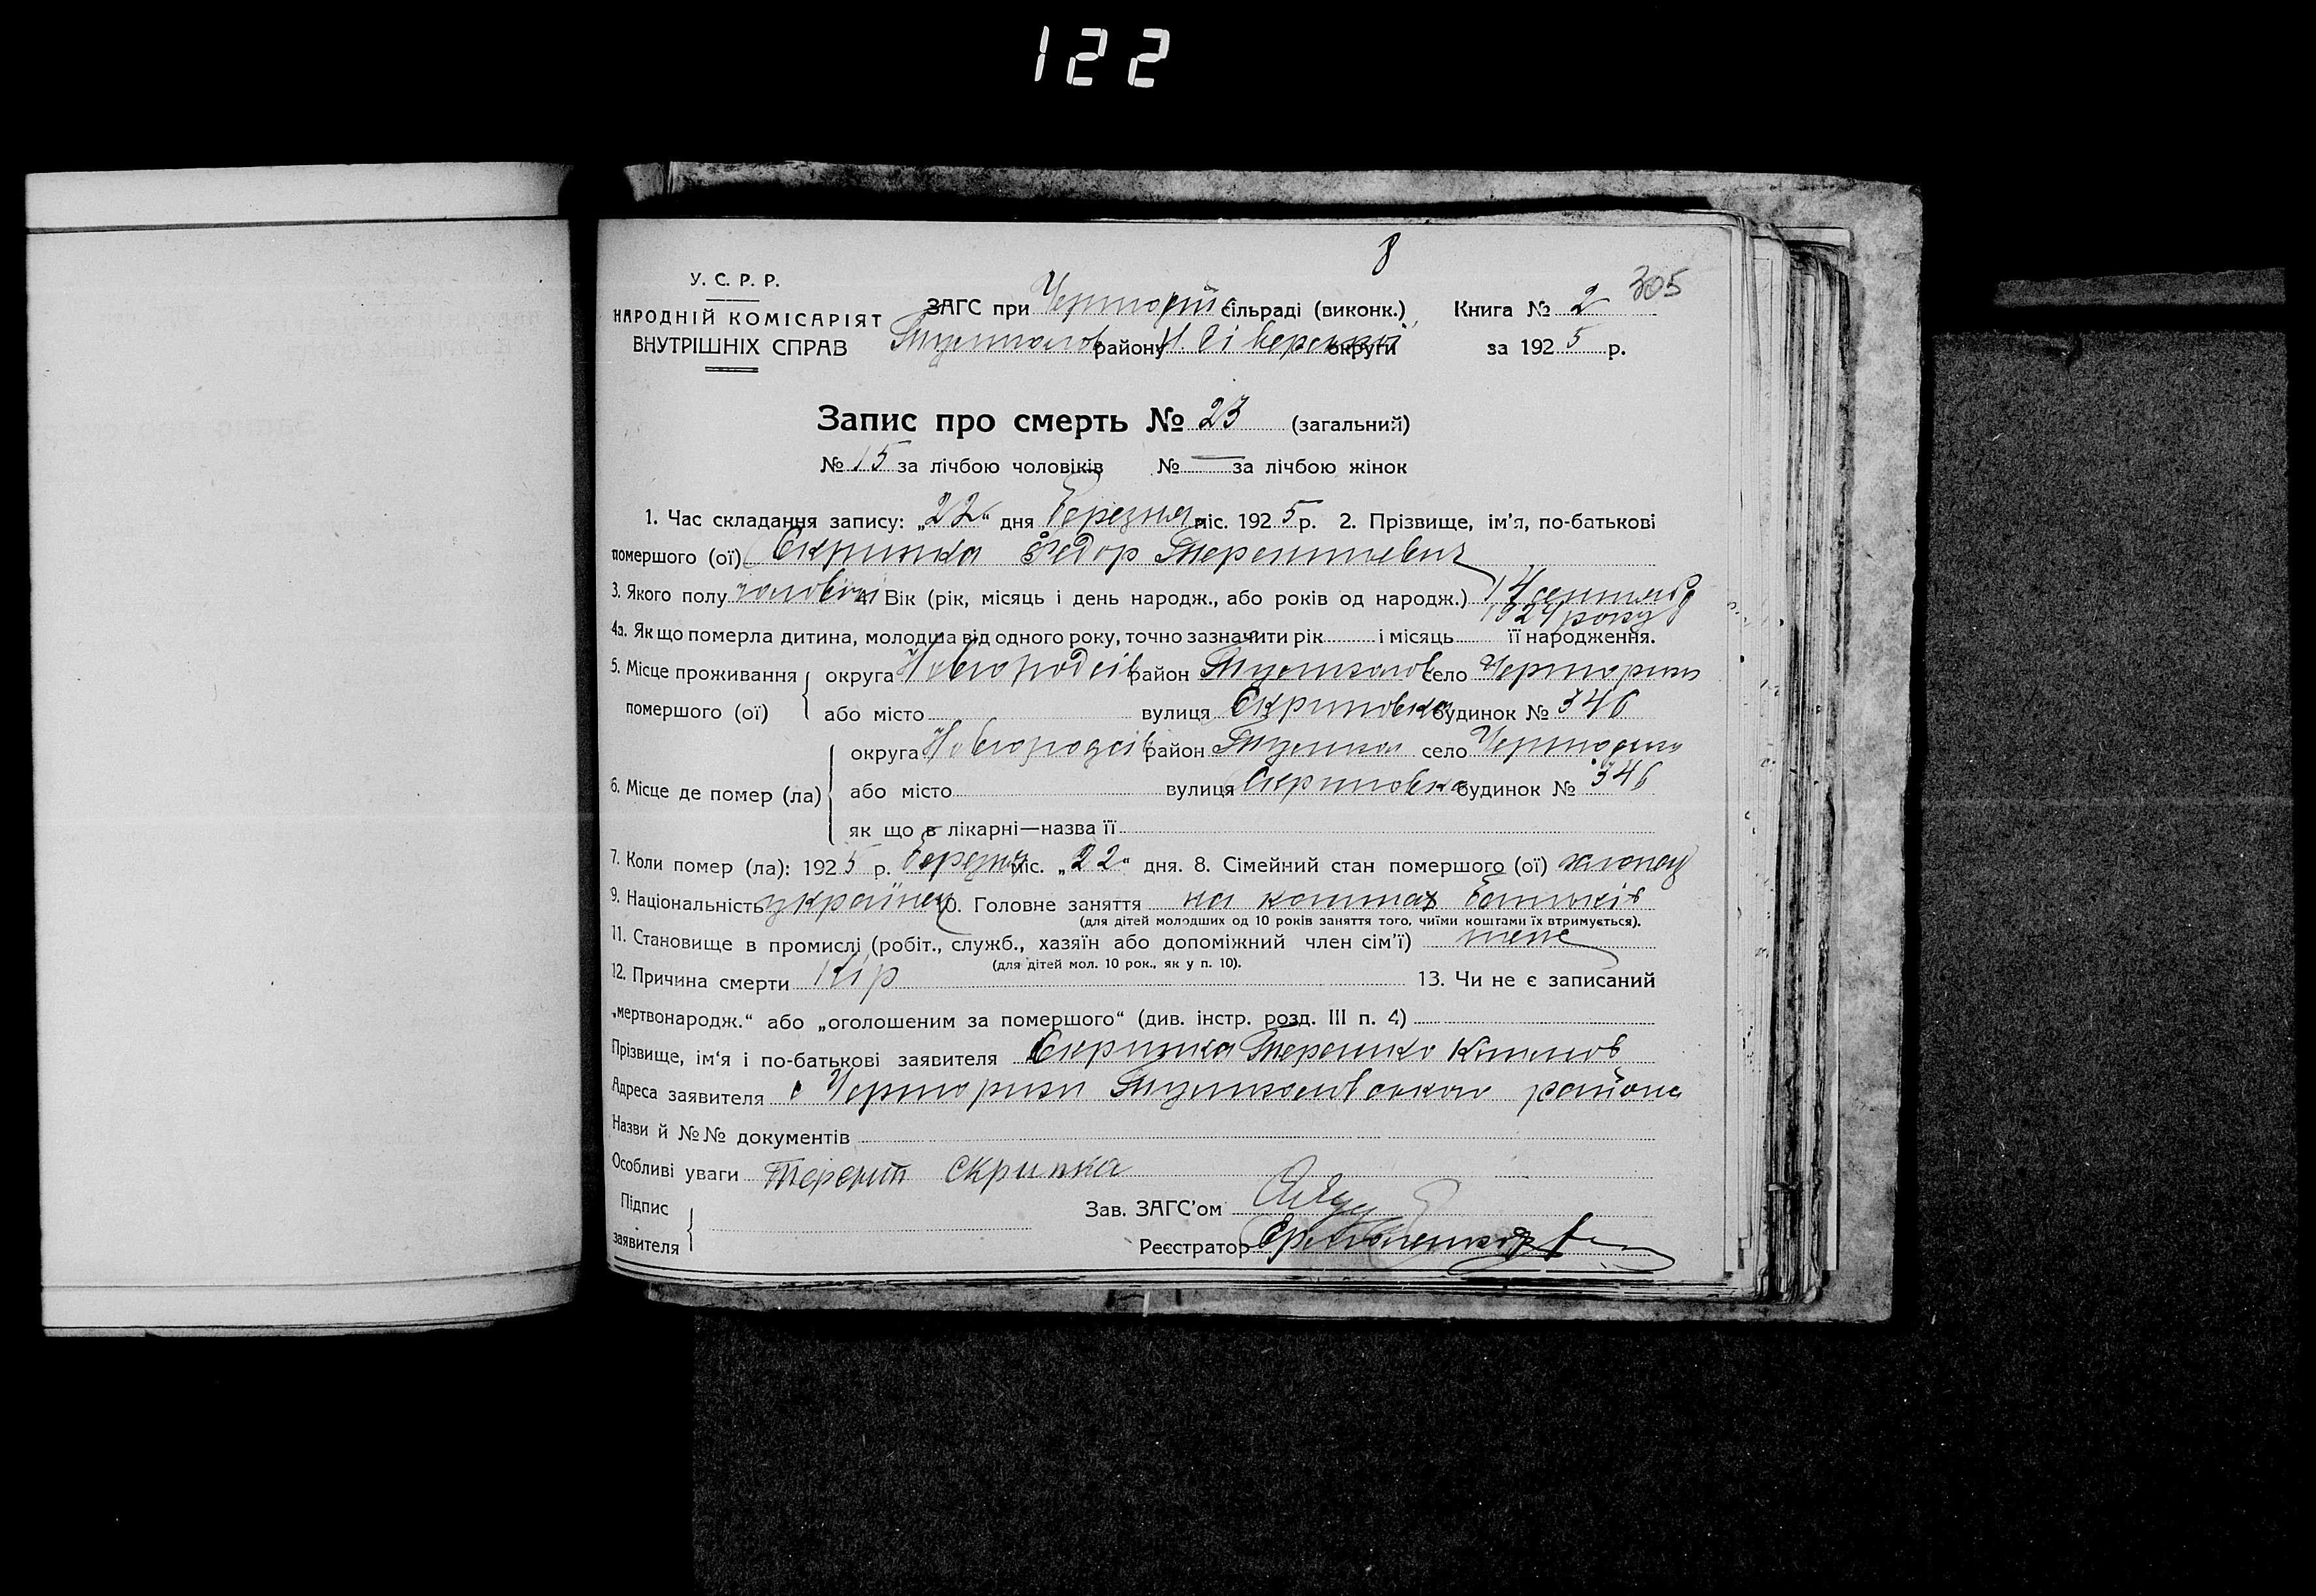 122
8
305
У. С. Р. Р.
НАРОДНІЙ КОМІСАРІЯТ
ВНУТРІШНІХ СПРАВ
ЗАГС при сільраді (виконк.) Книга № 2
району Н Сіверської округи за 1925 р.
Запис про смерть № 23 (загальний)
№ 15 за лічбою чоловіків № — за лічбою жінок
1. Час складання запису: „22“ дня березня міс. 1925 р. 2. Прізвище, ім'я, по-батькові
помершого (ої) Скрипка Федор Терентиевич
3. Якого полу чоловіч 4. Вік (рік, місяць і день народж., або років од народж.) 14
1924 року
4а. Як що померла дитина, молодша від одного року, точно зазначити рік і місяць її народження.
5. Місце проживання округа Новгородсів район село Чорториги
помершого (ої) або місто вулиця Скриповка будинок № 346
округа Новгородсів район село Чорториги
6. Місце де помер (ла) або місто вулиця Скриповка будинок № 346
як що в лікарні—назва її
7. Коли помер (ла): 1925 р. березня міс. „22“ дня. 8. Сімейний стан помершого (ої) холост
9. Національність українец 10. Головне заняття на коштах батьків
(для дітей молодших од 10 років заняття того, чиїми коштами їх втримується).
11. Становище в промислі (робіт., служб., хазяїн або допоміжний член сім'ї) теж
(для дітей мол. 10 рок., як у п. 10).
12. Причина смерти Кір 13. Чи не є записаний
„мертвонародж.“ або „оголошеним за помершого“ (див. інстр. розд. III п. 4)
Прізвище, ім'я і по-батькові заявителя Скрипка Терешко Климов
Адреса заявителя с Чорториги району
Назви й №№ документів
Особливі уваги Терентій Скрипка
Підпис
заявителя
Зав. ЗАГС'ом
Реєстратор